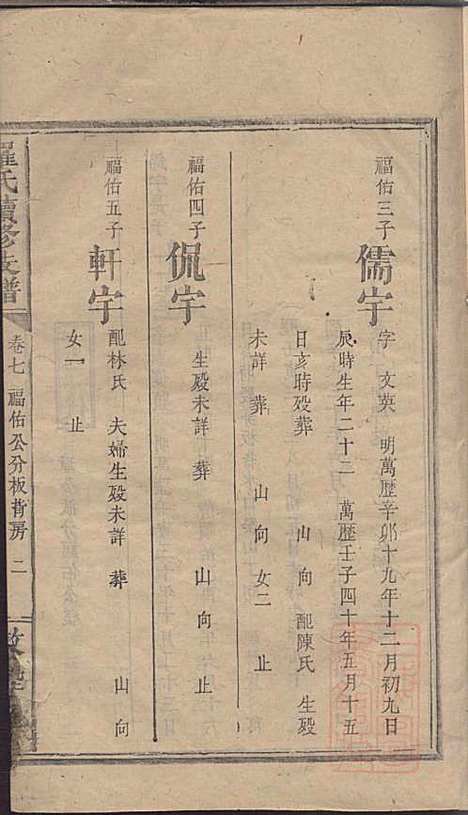 福佑三子
儒宇 字 文英 明萬歷辛卯十九年十二月初九日
辰時生年二十二 萬歷壬子四十年五月十五
日亥時殁葬 山 向 配陳氏 生殁
未詳 葬 山 向 女二 止
福佑四子
侃宇 生殁未詳 葬 山 向 止
福佑五子
軒宇 配林氏 夫婦生殁未詳 葬 山 向
女一 止
羅氏續修支譜 卷七 福佑公分板背房 二